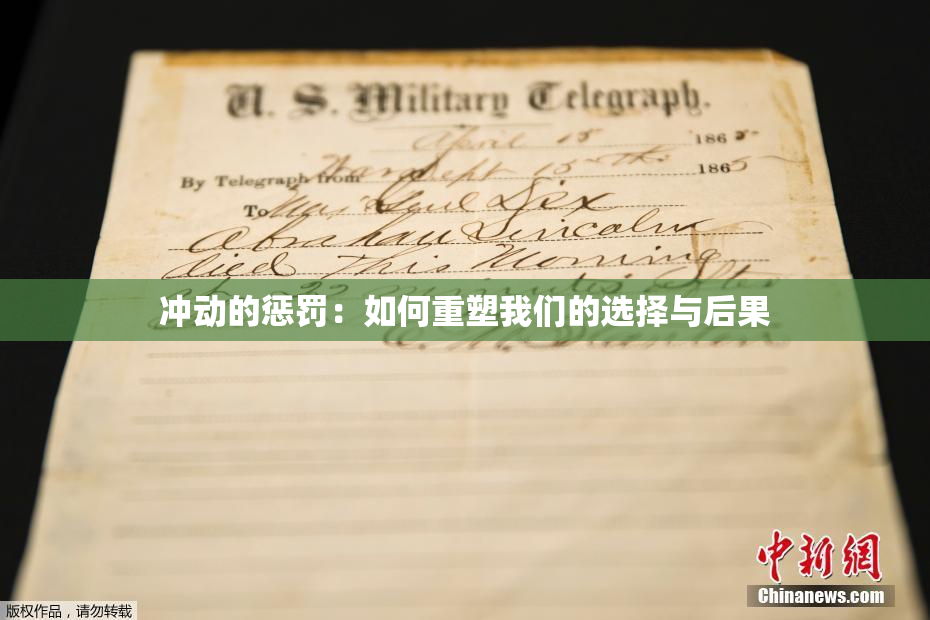 U. S. Military Telegraph.
April 15 1865
By Telegraph from War Dept 15th 1865
To Maj Genl Dix
Abraham Lincoln
died This Morning
22 minutes after
冲动的惩罚：如何重塑我们的选择与后果
E. M. Stanton
中新网
Chinanews.com
版权作品，请勿转载